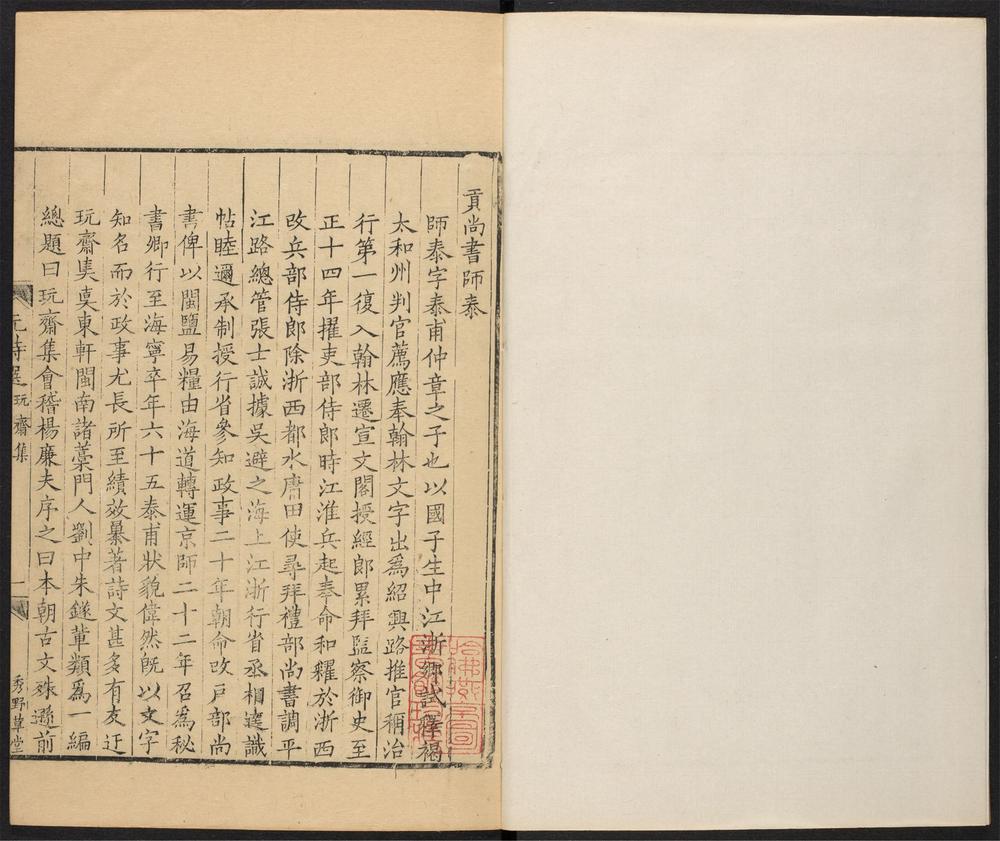 貢尚書師泰
師泰字泰甫仲章之子也以國子生中江浙鄉試釋褐
太和州判官薦應奉翰林文字出爲紹興路推官稱治
行第一復入翰林遷宣文閣授經郎累拜監察御史至
正十四年擢吏部侍郎時江淮兵起奉命和糴於浙西
改兵部侍郎除浙西都水庸田使尋拜禮部尚書調平
江路總管張士誠據吳避之海上江浙行省丞相達識
帖睦邇承制授行省參知政事二十年朝命改戶部尚
書俾以閩鹽易糧由海道轉運京師二十二年召爲秘
書卿行至海寧卒年六十五泰甫狀貌偉然旣以文字
知名而於政事尤長所至績效纍著詩文甚多有友迂
玩齋集㒹東軒閩南諸藁門人劉中朱鐩輩類爲一編
總題曰玩齋集會稽楊廉夫序之曰本朝古文殊遜前
元詩選 玩齋集 一 秀野草堂
哈佛燕京圖